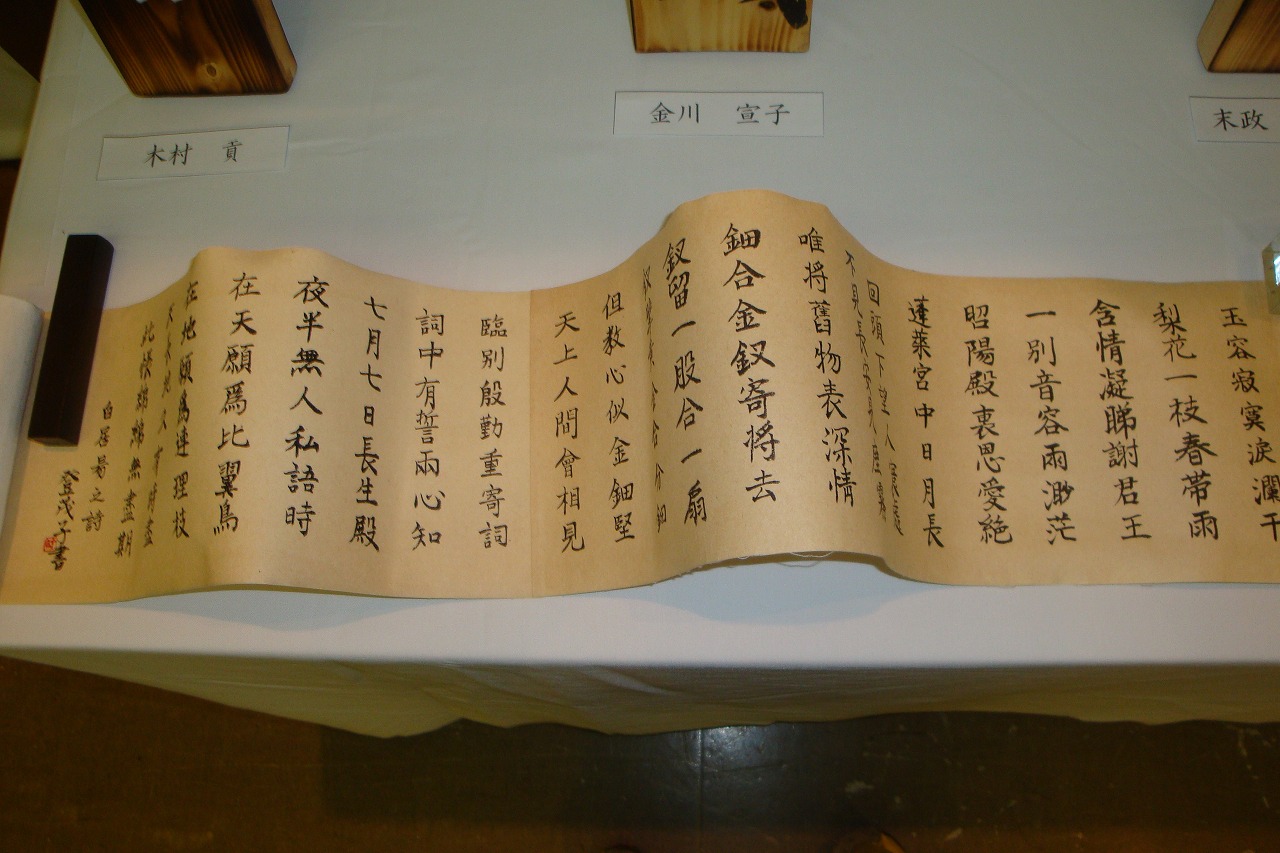 木村 貢
金川 宣子
末政
玉容寂寞涙瀾干
梨花一枝春帯雨
含情凝睇謝君王
一別音容雨渺茫
昭陽殿裏思愛絶
蓬萊宮中日月長
回頭下望人
不見長安
唯将舊物表深情
鈿合金釵寄将去
釵留一股合一扇
但教心似金鈿堅
天上人間會相見
臨別殷勤重寄詞
詞中有誓兩心知
七月七日長生殿
夜半無人私語時
在天願爲比翼鳥
在地願爲連理枝
天長地久有時盡
此恨綿綿無盡期
白居易之詩
登茂子書